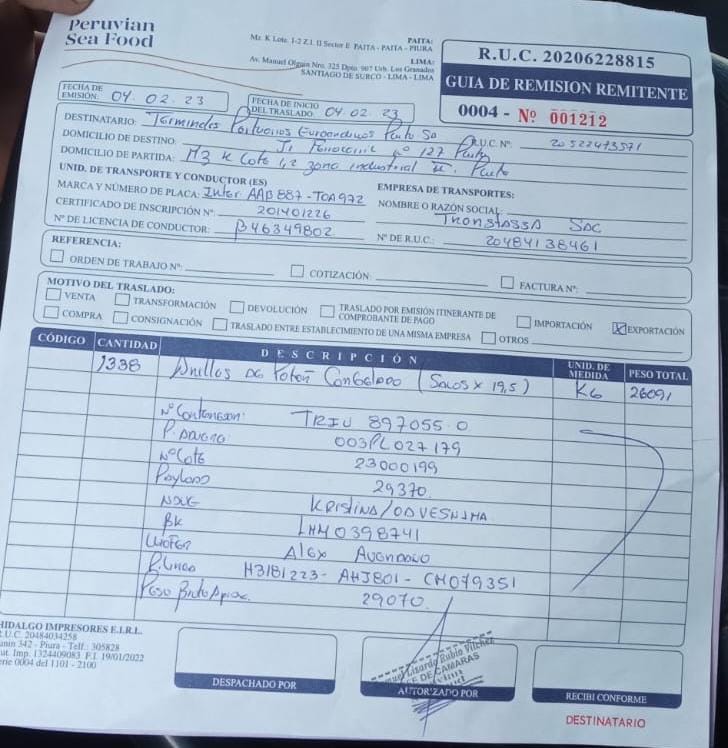 Peruvian
Sea Food
PAITA:
Mz. K Lote. 1-2 Z.I. II Sector E PAITA - PAITA - PIURA
LIMA:
Av. Manuel Olguin Nro. 325 Dpto. 907 Urb. Los Granados
SANTIAGO DE SURCO - LIMA - LIMA
R.U.C. 20206228815
GUIA DE REMISION REMITENTE
0004 - Nº 001212
FECHA DE EMISIÓN: 04. 02. 23
FECHA DE INICIO DEL TRASLADO: 04. 02. 23
DESTINATARIO: Terminales Portuarios Euroandinos Paita Sa R.U.C. Nº: 20522473571
DOMICILIO DE DESTINO: Jr Ferrocarril nº 127 Paita
DOMICILIO DE PARTIDA: Mz K Lote 1,2 zona industrial II. Paita
UNID. DE TRANSPORTE Y CONDUCTOR (ES)
EMPRESA DE TRANSPORTES:
MARCA Y NÚMERO DE PLACA: Inter. AAB 887 - TOA972
NOMBRE O RAZÓN SOCIAL:
CERTIFICADO DE INSCRIPCIÓN Nº: 201401226
SAC
Nº DE LICENCIA DE CONDUCTOR: B46349802
Nº DE R.U.C.: 20484138461
REFERENCIA:
ORDEN DE TRABAJO Nº:
COTIZACIÓN:
FACTURA Nº:
MOTIVO DEL TRASLADO:
VENTA
TRANSFORMACIÓN
DEVOLUCIÓN
TRASLADO POR EMISIÓN ITINERANTE DE COMPROBANTE DE PAGO
IMPORTACIÓN
X EXPORTACIÓN
COMPRA
CONSIGNACIÓN
TRASLADO ENTRE ESTABLECIMIENTO DE UNA MISMA EMPRESA
OTROS
CÓDIGO CANTIDAD DESCRIPCIÓN UNID. DE MEDIDA PESO TOTAL
1338 Anillos de Poton Congelado (Sacos x 19,5) KG 26091
Nº Contenedor: TRIU 897055.0
P. Aduana 003PL027179
Nº Lote 23000199
Payload 29370.
Nave Kristina/
BK LHM0398741
Chofer Alex Avendaño
P. Linea H3181223 - AHJ801 - CH079351
Peso Bruto Aprox. 29070.
HIDALGO IMPRESORES E.I.R.L.
R.U.C. 20484034258
Junin 342 - Piura - Telf.: 305828
Aut. Imp. 1324409083 F.I. 19/01/2022
Serie 0004 del 1101 - 2100
DESPACHADO POR
Lizardo Rubio Vilchez
JEFE DE CAMARAS
AUTORIZADO POR
RECIBI CONFORME
DESTINATARIO